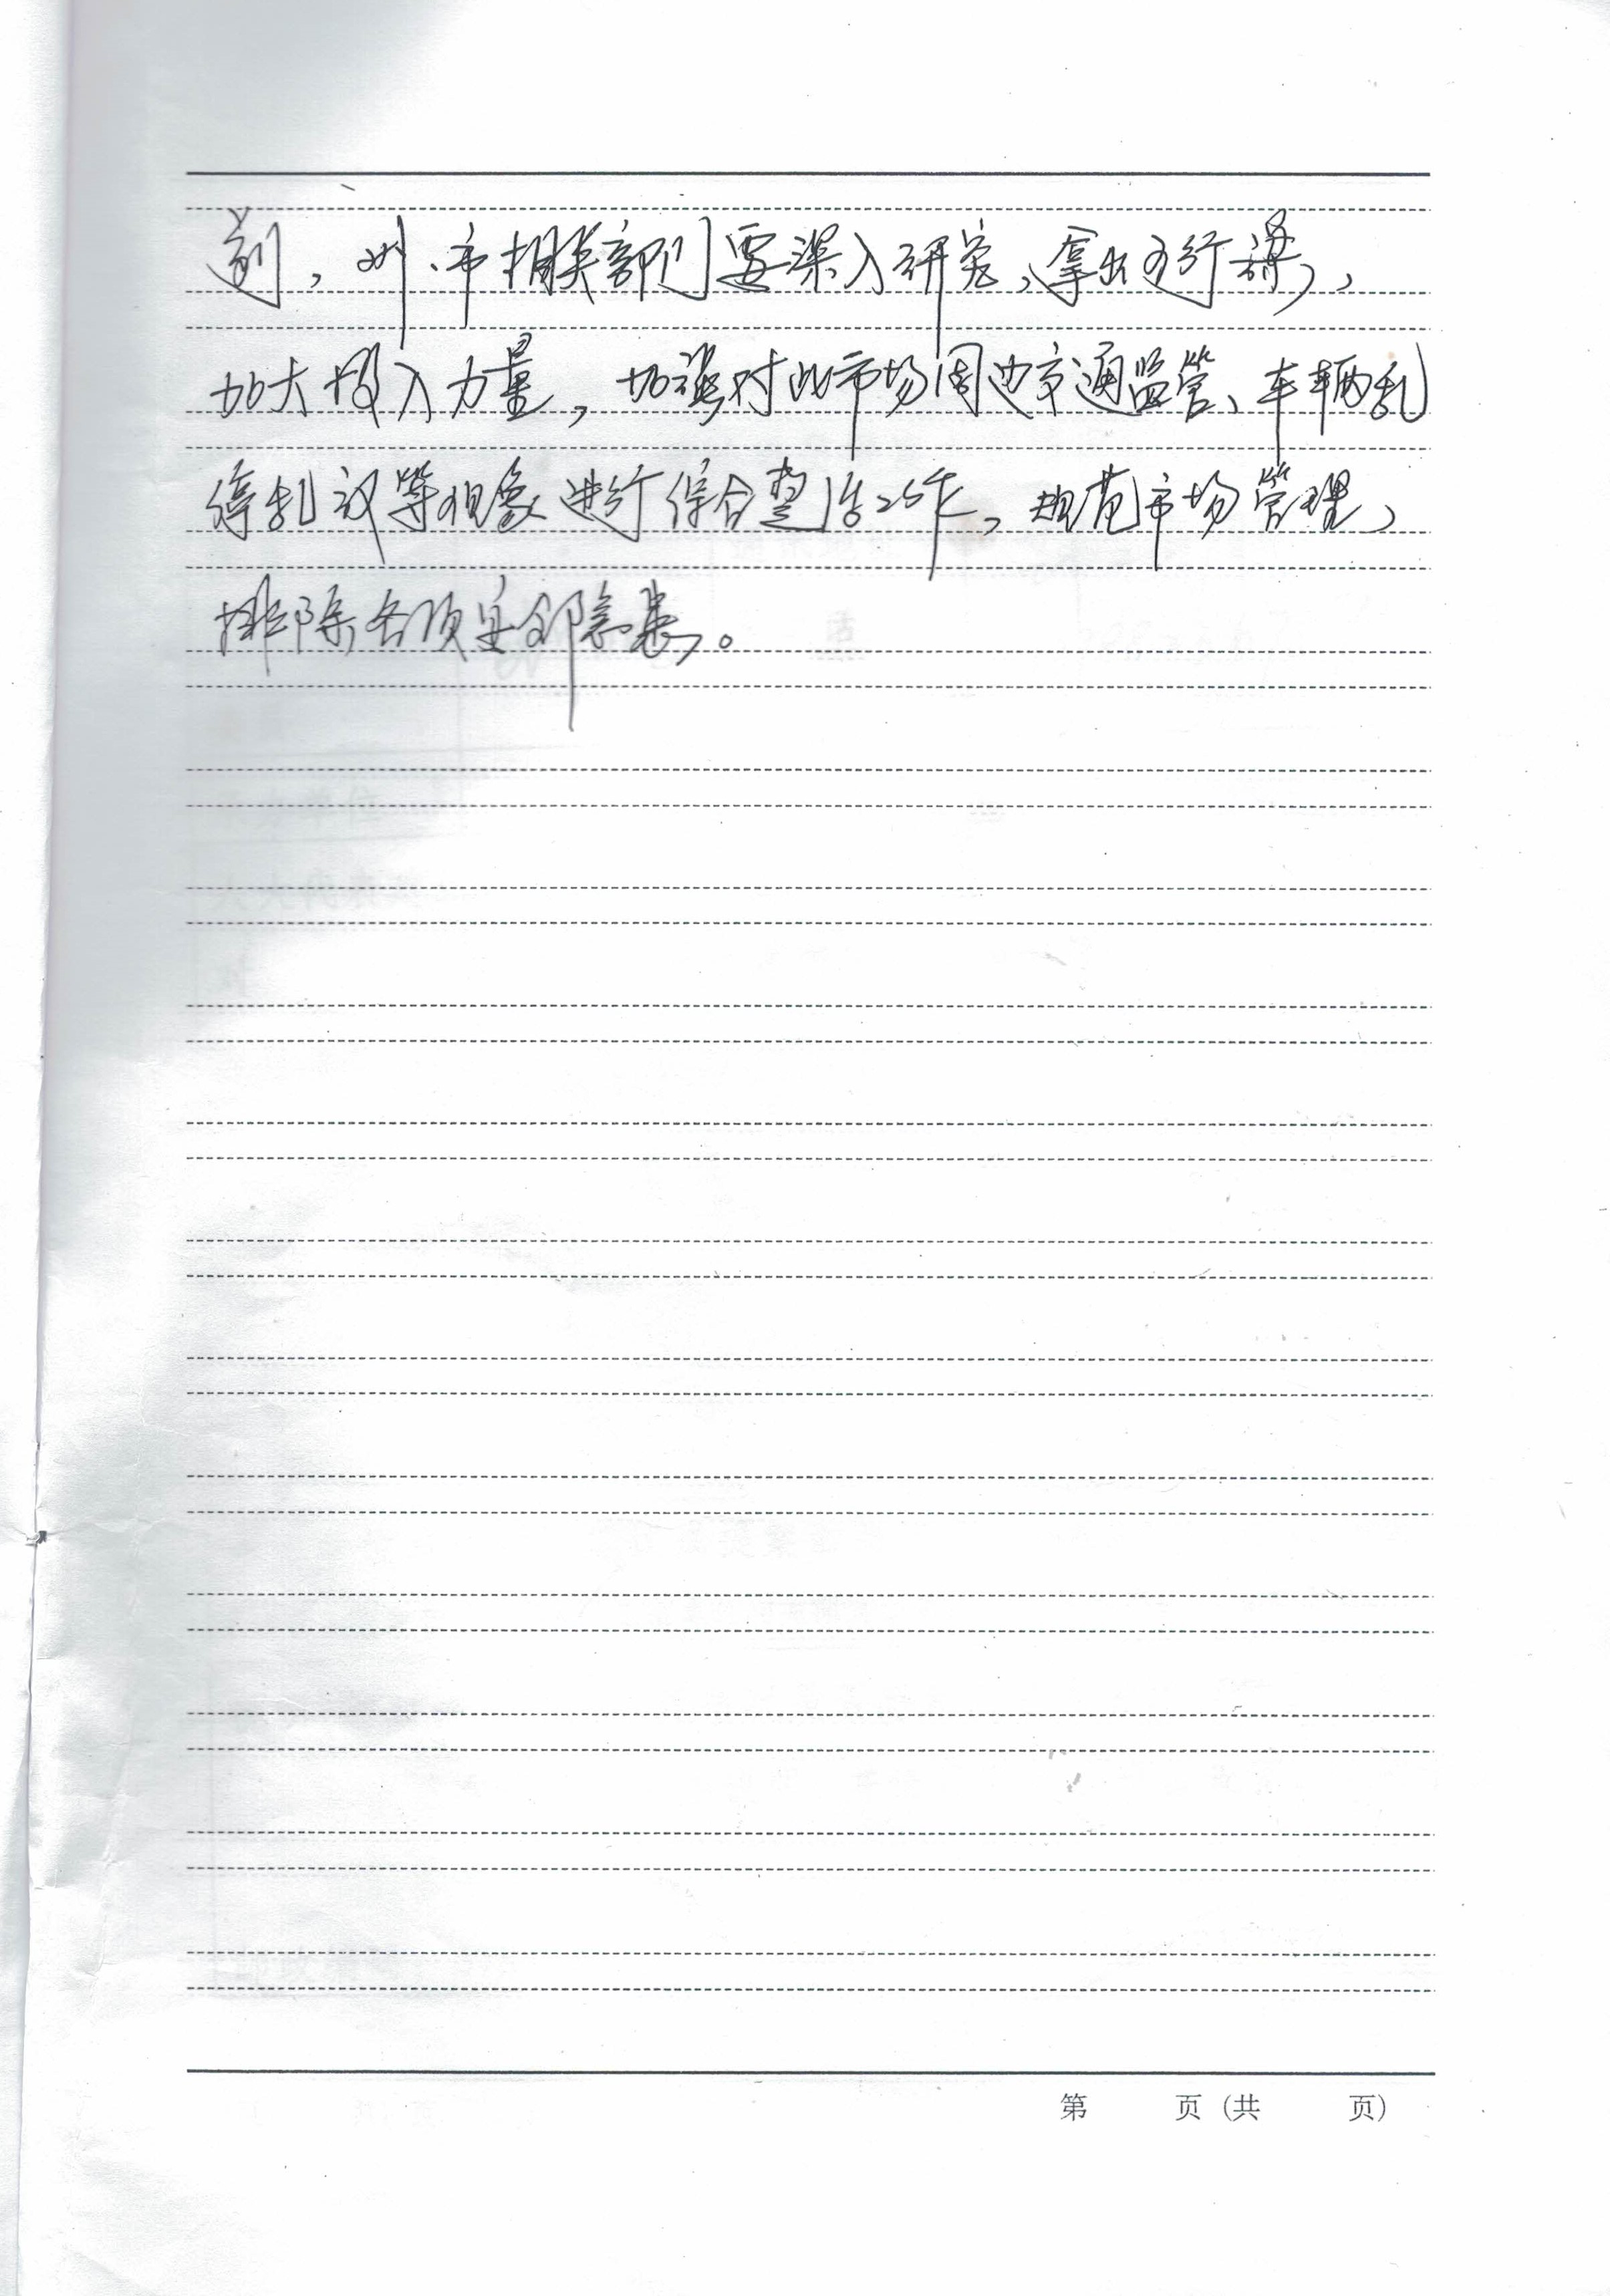 ，州、市相关部门要深入研究，拿出可行措，
加大投入力量，加强对此市场周边交通监管、车辆乱
停乱放等现象进行综合整治工作，规范市场管理，
排除各项安全隐患。
第 页（共 页）